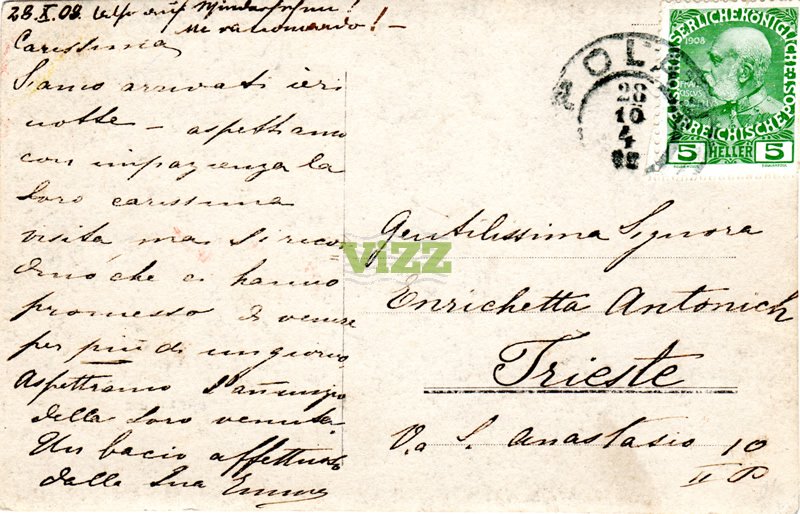 28.X.08. auf Wiedersehen!
Mi raccomando!
Carissima
Siamo arrivati ieri
notte – aspettiamo
con impazienza la
loro carissima
visita ma si ricor
dino che ci hanno
promesso di venire
per più di un giorno,
Aspettiamo l'annunzio
della loro venuta.
Un bacio affettuoso
dalla Sua Emma
POLA
28
10
4
KAISERLICHE KÖNIGLICHE
1908
ÖSTERREICHISCHE
5 HELLER 5
VIZZ
Gentilissima Signora
Enrichetta Antonich
Trieste
Via S. Anastasio 10
II P